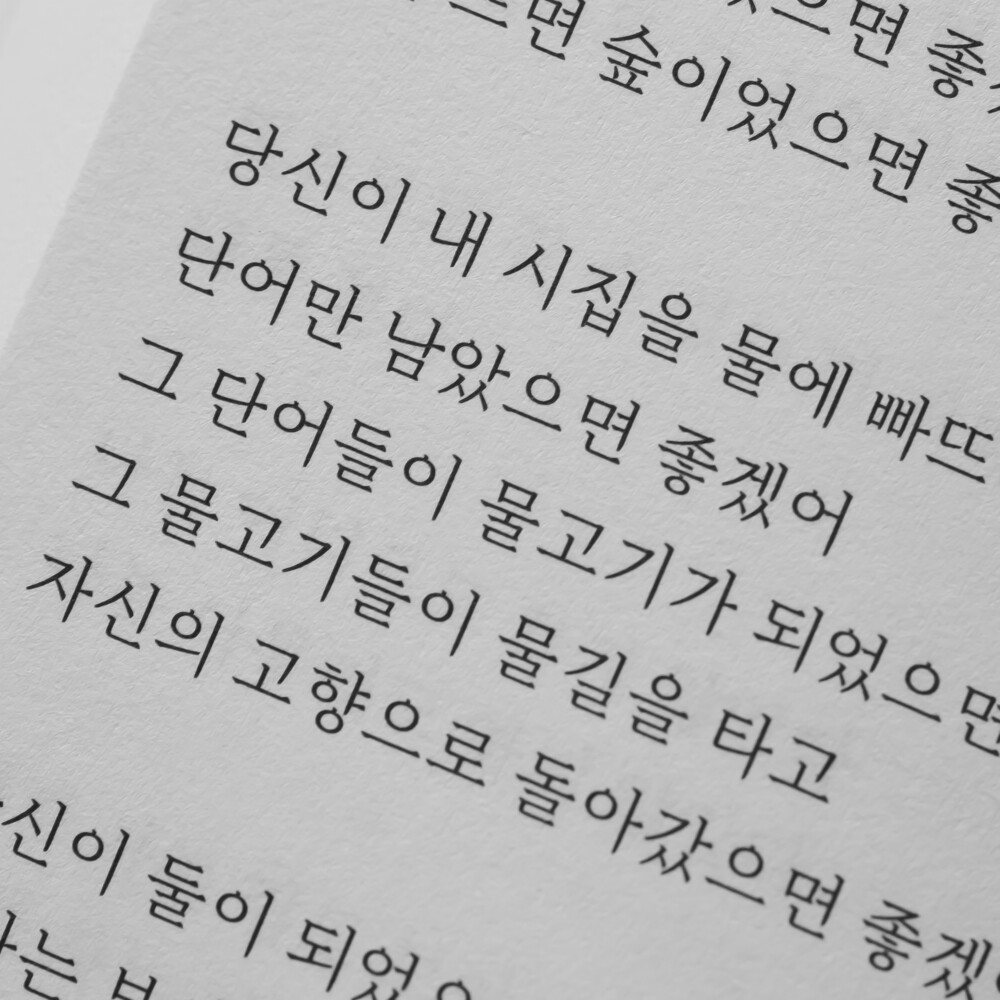 으면 좋
으면 숲이었으면 좋
당신이 내 시집을 물에 빠뜨
단어만 남았으면 좋겠어
그 단어들이 물고기가 되었으면
그 물고기들이 물길을 타고
자신의 고향으로 돌아갔으면 좋겠
신이 둘이 되었으
는